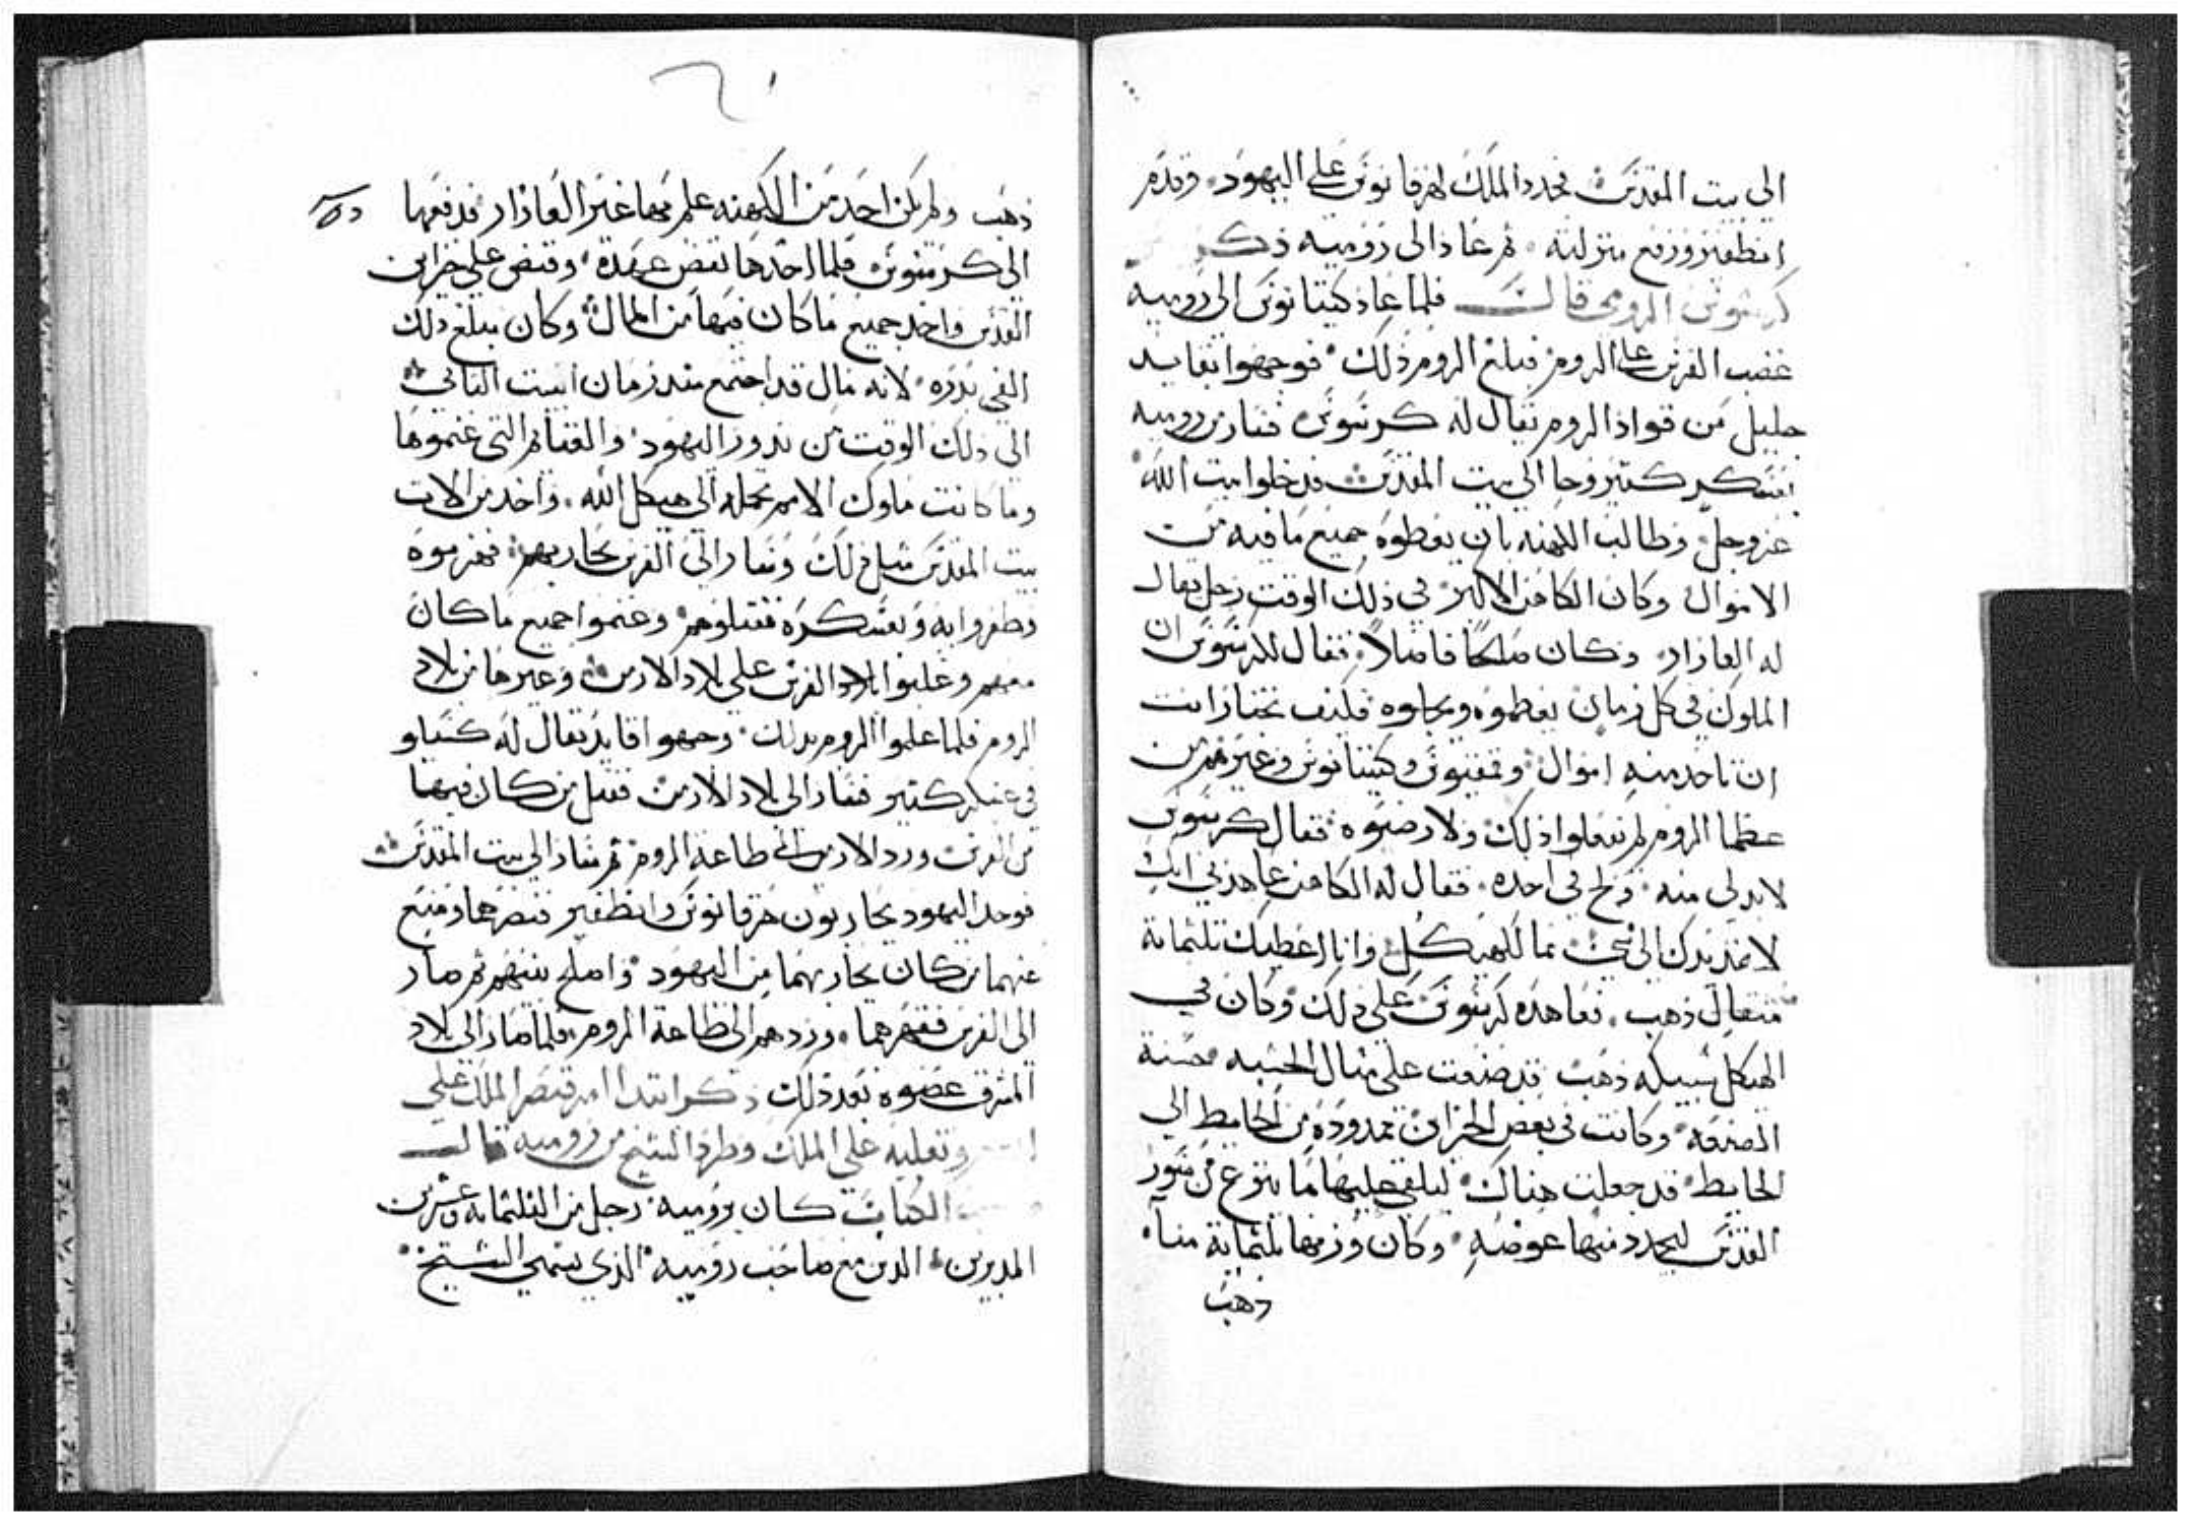 الى بيت المقدس فجدد الملك لهرقانوس على اليهود وقدم
انطفتر ورفع منزلته ثم عاد الى رومية ذكر
كرسوس الرومي قال فلما عاد كيتانوس الى رومية
غضب الفرس على الروم فبلغ الروم ذلك فوجهوا بقايد
جليل من قواد الروم يقال له كرسوس فسار من رومية
بعسكر كتير وجا الى بيت المقدس فدخلوا بيت الله
عز وجل وطالب الكهنه بان يعطوه جميع ما فيه من
الاموال وكان الكاهن الاكبر في ذلك الوقت رجل يقال
له العازار وكان صالحا فاضلا فقال لكرسوس ان
الملوك في كل زمان يعظموه ويجلوه فكيف تختار انت
ان تاخد منه اموال وتمفيوس وكيتانوس وغيرهم من
عظما الروم لم يفعلوا ذلك ولا رضوه فقال كرسوس
لابد لي منه ولج في اخده فقال له الكاهن عاهدني انك
لا تمد يدك الى شي مما للهيكل وانا اعطيك تلتماية
متقال ذهب فعاهده كرسوس على ذلك وكان في
الهيكل سبيكه ذهب قد صنعت على متال الخشبه حسنة
الصنعه وكانت في بعض الخزاين ممدودة من الحايط الى
الحايط قد جعلت هناك ليلقى عليها ما ينزع من ستور
القدس ليجدد منها عوضه وكان وزنها تلتماية منا
ذهب
ذهب ولم يكن احد من الكهنه علم بها غير العازار فدفعها
الى كرسوس فلما اخدها نقض عهده وقبض على خزاين
القدس واخد جميع ما كان فيها من المال وكان مبلغ ذلك
الفي بدره لانه مال قد اجتمع مند زمان البيت التاني
الى ذلك الوقت من ندور اليهود والغنايم التي غنموها
وما كانت ملوك الامم تحمله الى هيكل الله واخد من الات
بيت المقدس متل ذلك وسار الى الفرس يحاربهم فهزموه
وظفروا به وبعسكره فقتلوهم وغنموا جميع ما كان
معهم وغلبوا الفرس على بلاد الارمن وغيرها من بلاد
الروم فلما علموا الروم بدلك وجهوا قايد يقال له كسياو
في عسكر كتير فسار الى بلاد الارمن فقتل من كان فيها
من الفرس ورد الارمن الى طاعة الروم ثم سار الى بيت المقدس
فوجد اليهود يحاربون هرقانوس وانطفتر فنصرهما ومنع
عنهما من كان يحاربهما من اليهود واصلح بينهم ثم سار
الى الفرس فقهرهما وردهم الى طاعة الروم فلما صار الى بلاد
المشرق عصوه بعد ذلك ذكر ابتدا امر قيصر الملك على
وتغلبه على الملك وطرد الشيخ من رومية قال
الكتاب كان برومية رجل من التلتماية وعشرين
المدبرين الدين مع صاحب رومية الذي يسمى الشيخ